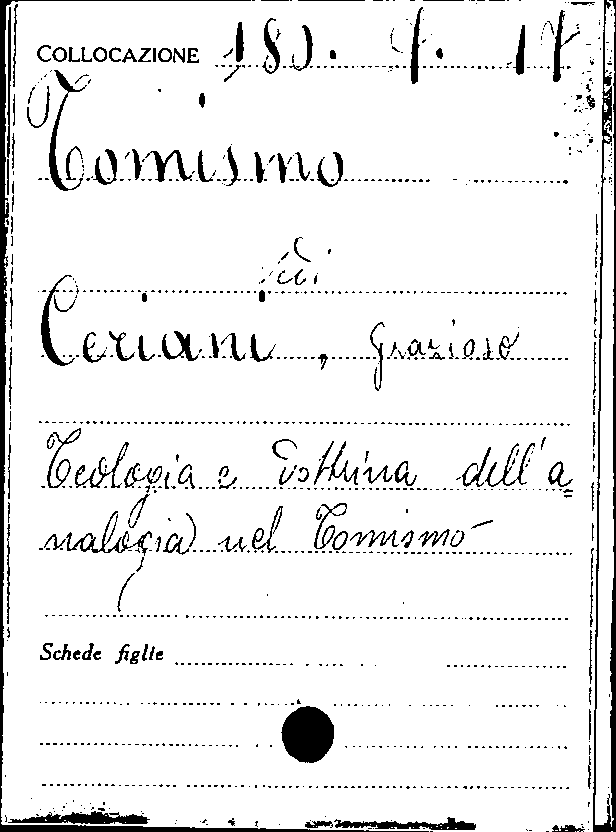 COLLOCAZIONE 180. 7. 17
Tomismo
Vedi
Ceriani, Grazioso
Teologia e Dottrina dell'a=
nalogia nel Tomismo
Schede figlie